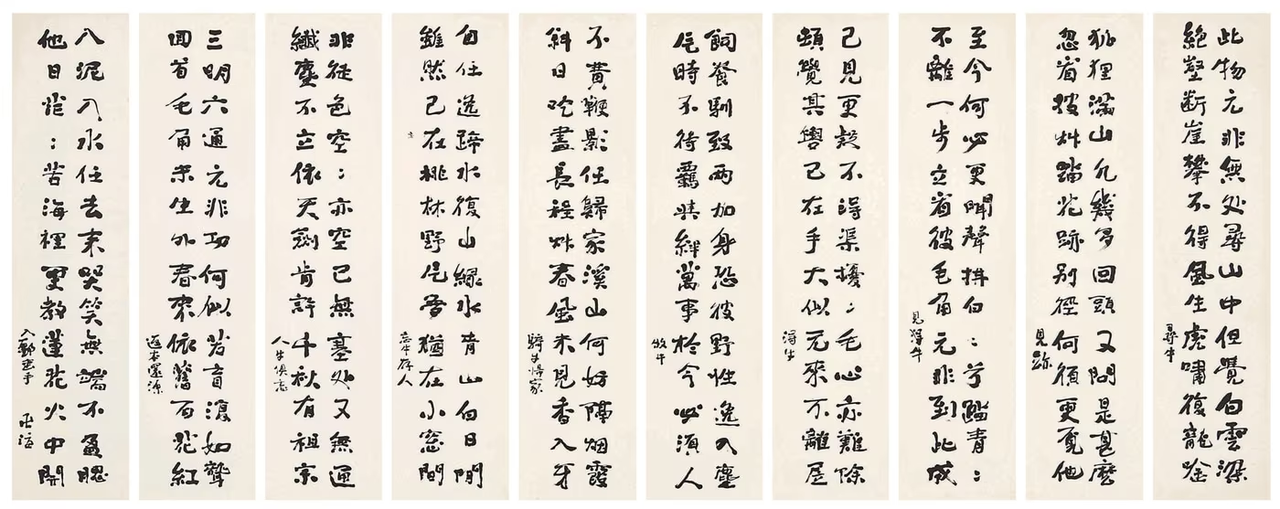 此物元非無处尋山中但覺白雲深
絕壑断崖攀不得風生虎嘯復龍唫
尋牛
狐狸滿山凡幾多回頭又問是甚麽
忽省披艸踏花跡別徑何須更覓他
見跡
至今何必更聞聲拜白:兮濫青:
不離一步立省彼毛角元非到此成
見得牛
已見更疑不得渠擾:毛心亦難除
頓覺其轡已在手大似元來不離居
得牛
飼養馴致兩加身恐彼野性逸入塵
片時不待羈与絆萬事於今必須人
牧牛
不費鞭影任歸家溪山何妨隔烟霞
斜日吃盡長程艸春風未見香入牙
騎牛歸家
自任逸蹄水復山緑水青山白日閒
雖然已在桃林野片雲猶在小窓間
忘牛存人
非徒色空:亦空已無塞处又無通
纖塵不立依天劍肯許千秋有祖宗
人牛俱忘
三明六通元非功何似若盲復如聾
回首毛角未生外春來依舊百花紅
返本還源
入泥入水任去來哭笑無端不盈腮
他日茫:苦海裡更教蓮花火中開
入鄽垂手